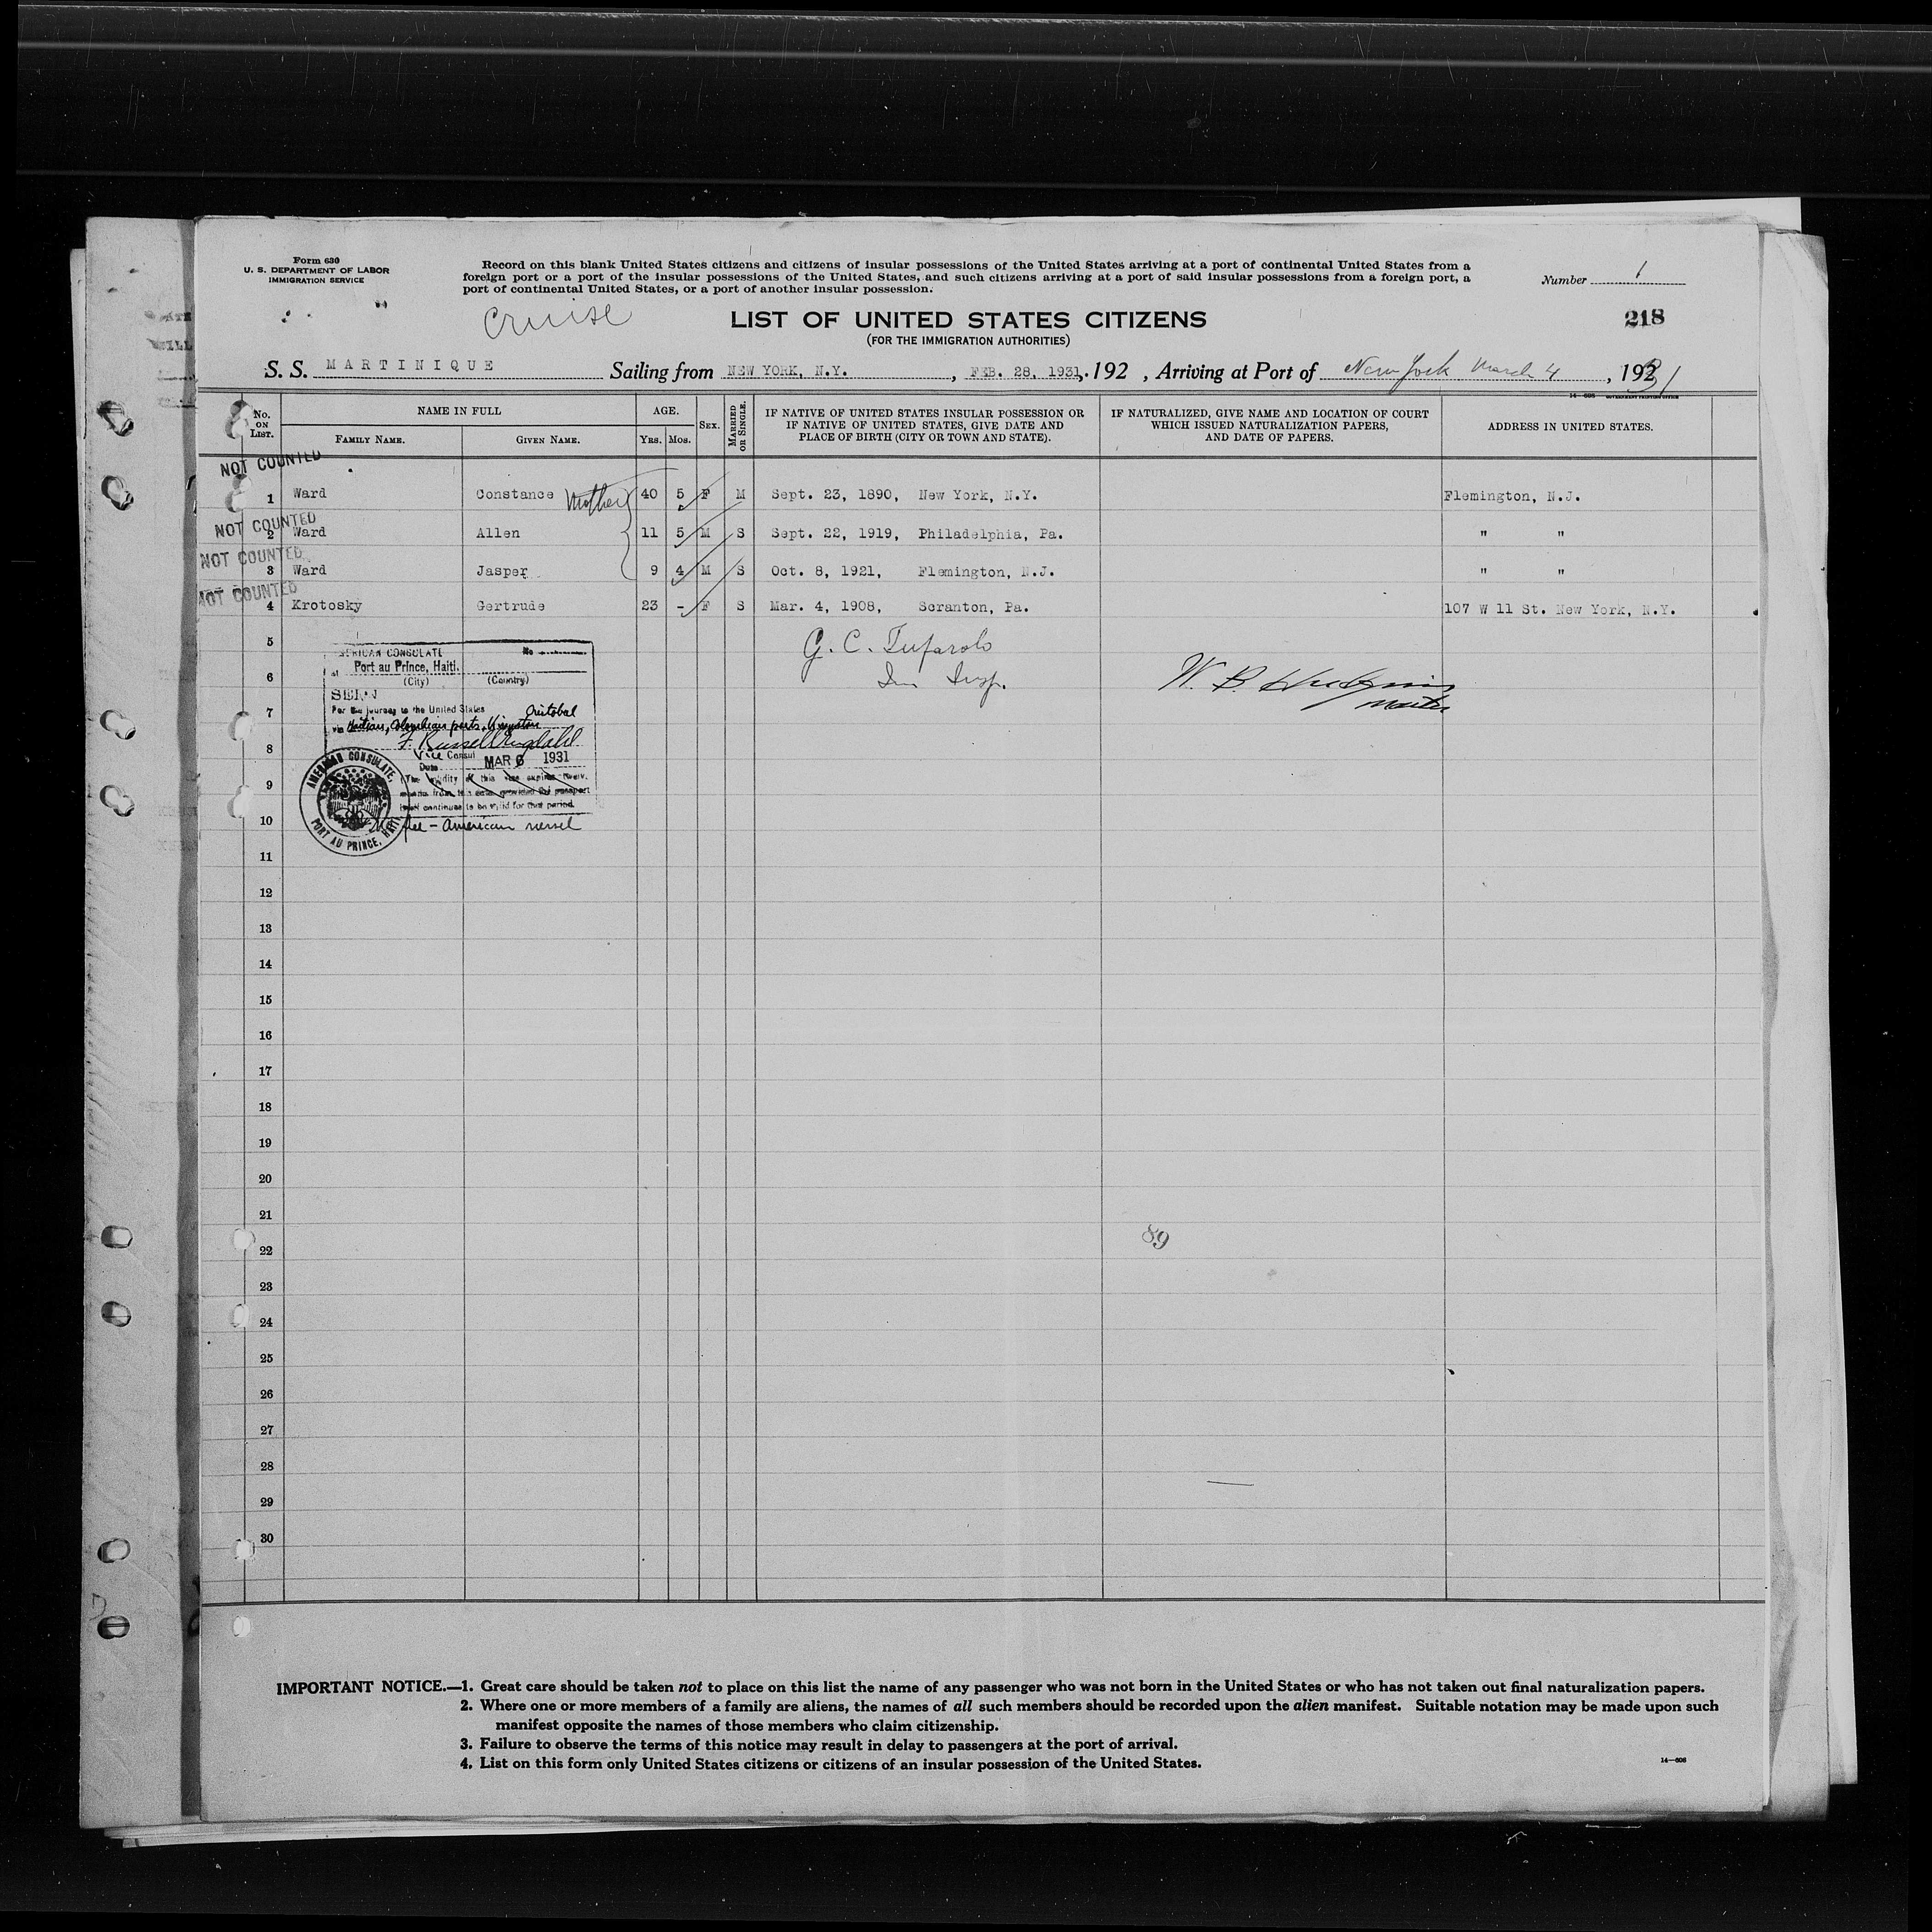 Form 630
U. S. DEPARTMENT OF LABOR
IMMIGRATION SERVICE
Record on this blank United States citizens and citizens of insular possessions of the United States arriving at a port of continental United States from a
foreign port or a port of the insular possessions of the United States, and such citizens arriving at a port of said insular possessions from a foreign port, a
port of continental United States, or a port of another insular possession.
Number 1
Cruise
LIST OF UNITED STATES CITIZENS
(FOR THE IMMIGRATION AUTHORITIES)
218
S. S. MARTINIQUE Sailing from NEW YORK, N.Y. , FEB. 28, 1931, 192 , Arriving at Port of New York March 4 , 1931
No. ON LIST.
NAME IN FULL
FAMILY NAME.
GIVEN NAME.
AGE.
YRS.
MOS.
SEX.
MARRIED OR SINGLE.
IF NATIVE OF UNITED STATES INSULAR POSSESSION OR
IF NATIVE OF UNITED STATES, GIVE DATE AND
PLACE OF BIRTH (CITY OR TOWN AND STATE).
IF NATURALIZED, GIVE NAME AND LOCATION OF COURT
WHICH ISSUED NATURALIZATION PAPERS,
AND DATE OF PAPERS.
ADDRESS IN UNITED STATES.
NOT COUNTED
1 Ward Constance Mother 40 5 F M Sept. 23, 1890, New York, N.Y. Flemington, N.J.
NOT COUNTED
2 Ward Allen 11 5 M S Sept. 22, 1919, Philadelphia, Pa. " "
NOT COUNTED
3 Ward Jasper 9 4 M S Oct. 8, 1921, Flemington, N.J. " "
NOT COUNTED
4 Krotosky Gertrude 23 - F S Mar. 4, 1908, Scranton, Pa. 107 W 11 St. New York, N.Y.
5
G. C.
AMERICAN CONSULATE No
at Port au Prince, Haiti.
(City) (Country)
6
Insp.
W. B.
Master
SEEN
For the journey to the United States
7
Cristobal
via Haitian, Colombian ports, Kingston
8
F. Russell Engdahl
Vice Consul
Date MAR 6 1931
9
(The validity of this visa expires twelve
months from this date provided the passport
itself continues to be valid for that period.
AMERICAN CONSULATE,
PORT AU PRINCE, HAITI
10
No fee - American vessel
11
12
13
14
15
16
17
18
19
20
21
89
22
23
24
25
26
27
28
29
30
IMPORTANT NOTICE.—1. Great care should be taken not to place on this list the name of any passenger who was not born in the United States or who has not taken out final naturalization papers.
2. Where one or more members of a family are aliens, the names of all such members should be recorded upon the alien manifest. Suitable notation may be made upon such
manifest opposite the names of those members who claim citizenship.
3. Failure to observe the terms of this notice may result in delay to passengers at the port of arrival.
4. List on this form only United States citizens or citizens of an insular possession of the United States.
14—608